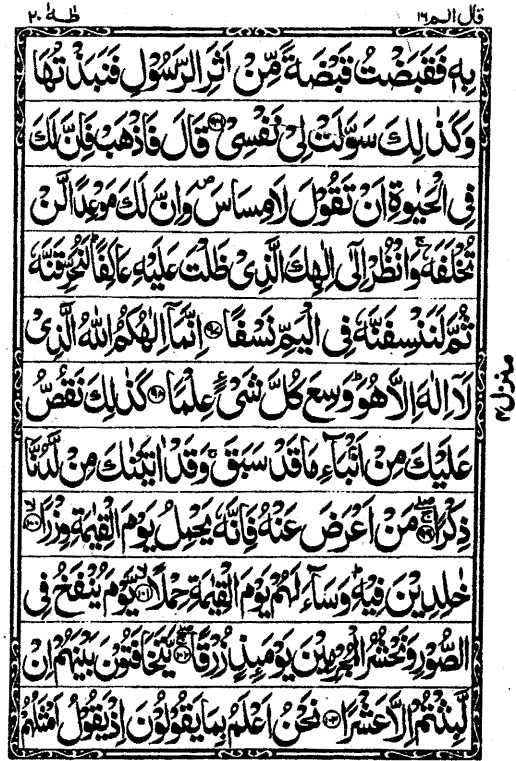 قال الم ١٦
طٰهٰ ٢٠
بِهٖ فَقَبَضْتُ قَبْضَةً مِّنْ اَثَرِ الرَّسُوْلِ فَنَبَذْتُهَا
وَكَذٰلِكَ سَوَّلَتْ لِىْ نَفْسِىْ ۝٩٦ قَالَ فَاذْهَبْ فَاِنَّ لَكَ
فِى الْحَيٰوةِ اَنْ تَقُوْلَ لَا مِسَاسَ ۖ وَاِنَّ لَكَ مَوْعِدًا لَّنْ
تُخْلَفَهٗ ۚ وَانْظُرْ اِلٰٓى اِلٰهِكَ الَّذِىْ ظَلْتَ عَلَيْهِ عَاكِفًا ؕ لَنُحَرِّقَنَّهٗ
ثُمَّ لَنَنْسِفَنَّهٗ فِى الْيَمِّ نَسْفًا ۝٩٧ اِنَّمَاۤ اِلٰهُكُمُ اللّٰهُ الَّذِىْ
لَاۤ اِلٰهَ اِلَّا هُوَ ؕ وَسِعَ كُلَّ شَىْءٍ عِلْمًا ۝٩٨ كَذٰلِكَ نَقُصُّ
عَلَيْكَ مِنْ اَنْۢبَآءِ مَا قَدْ سَبَقَ ۚ وَقَدْ اٰتَيْنٰكَ مِنْ لَّدُنَّا
ذِكْرًا ۖۚ ۝٩٩ مَنْ اَعْرَضَ عَنْهُ فَاِنَّهٗ يَحْمِلُ يَوْمَ الْقِيٰمَةِ وِزْرًا ۙ ۝١٠٠
خٰلِدِيْنَ فِيْهِ ؕ وَسَآءَ لَهُمْ يَوْمَ الْقِيٰمَةِ حِمْلًا ۙ ۝١٠١ يَّوْمَ يُنْفَخُ فِى
الصُّوْرِ وَنَحْشُرُ الْمُجْرِمِيْنَ يَوْمَئِذٍ زُرْقًا ۖۚ ۝١٠٢ يَّتَخَافَتُوْنَ بَيْنَهُمْ اِنْ
لَّبِثْتُمْ اِلَّا عَشْرًا ۝١٠٣ نَحْنُ اَعْلَمُ بِمَا يَقُوْلُوْنَ اِذْ يَقُوْلُ اَمْثَلُهُمْ
منزل ٤